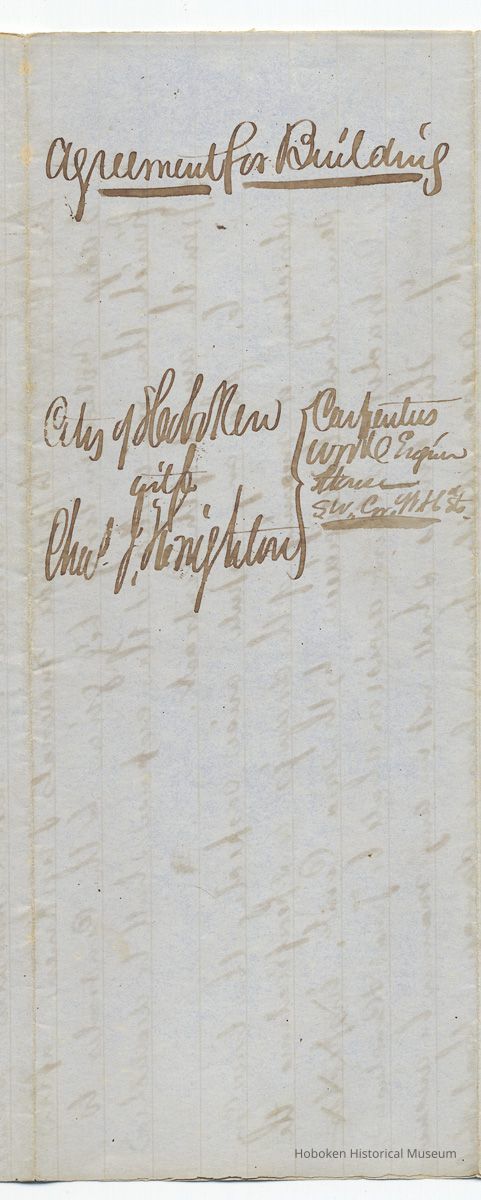 Agreement for Building
City of Hoboken
with
Chas. J. Knighton
Carpenters
work Engine
House
S W. Cor.
Hoboken Historical Museum